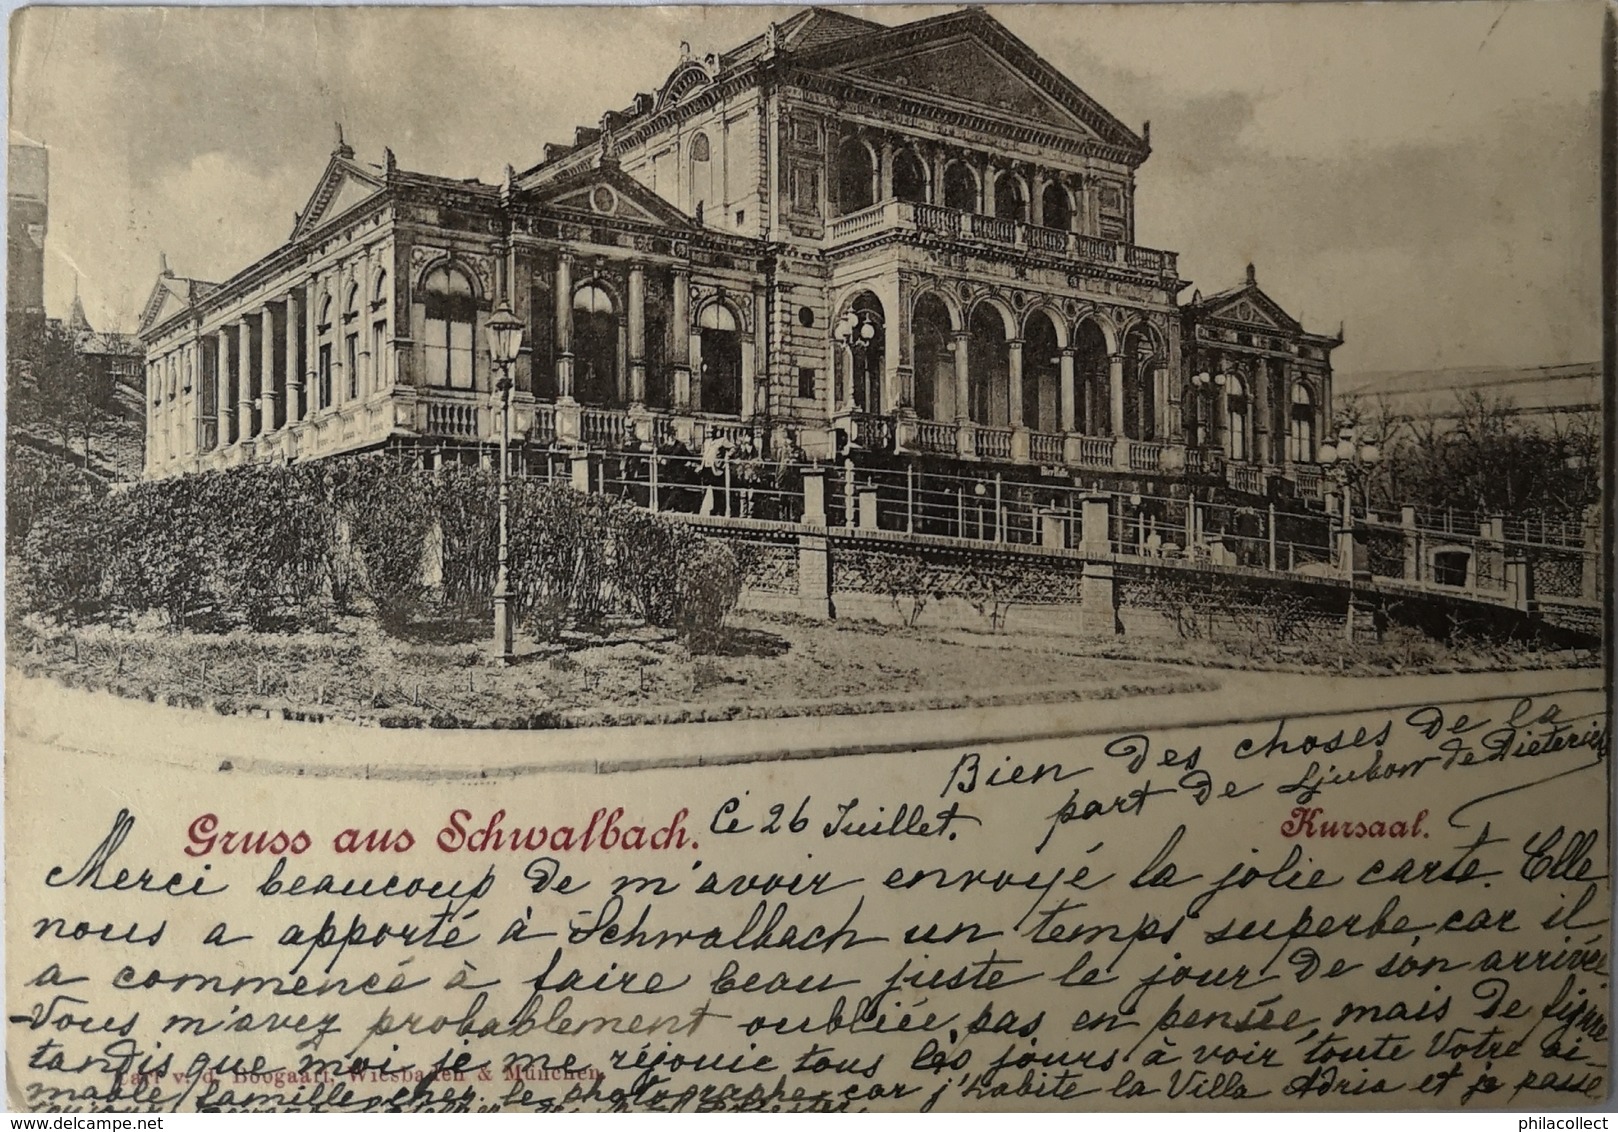 Bien des choses de la
part de Ljubow de Dieterichs
Gruss aus Schwalbach.
Ce 26 Juillet.
Kursaal.
Merci beaucoup de m'avoir envoyé la jolie carte. Elle
nous a apporté à Schwalbach un temps superbe car il
a commencé à faire beau juste le jour de son arrivée
Vous m'avez probablement oubliée, pas en pensée, mais de figure
tandis que moi je me réjouie tous les jours à voir toute Votre ai-
Carl v. d. Boogaart, Wiesbaden & München.
mable famille chez le photographe car j'habite la Villa Adria et je passe
www.delcampe.net
philacollect